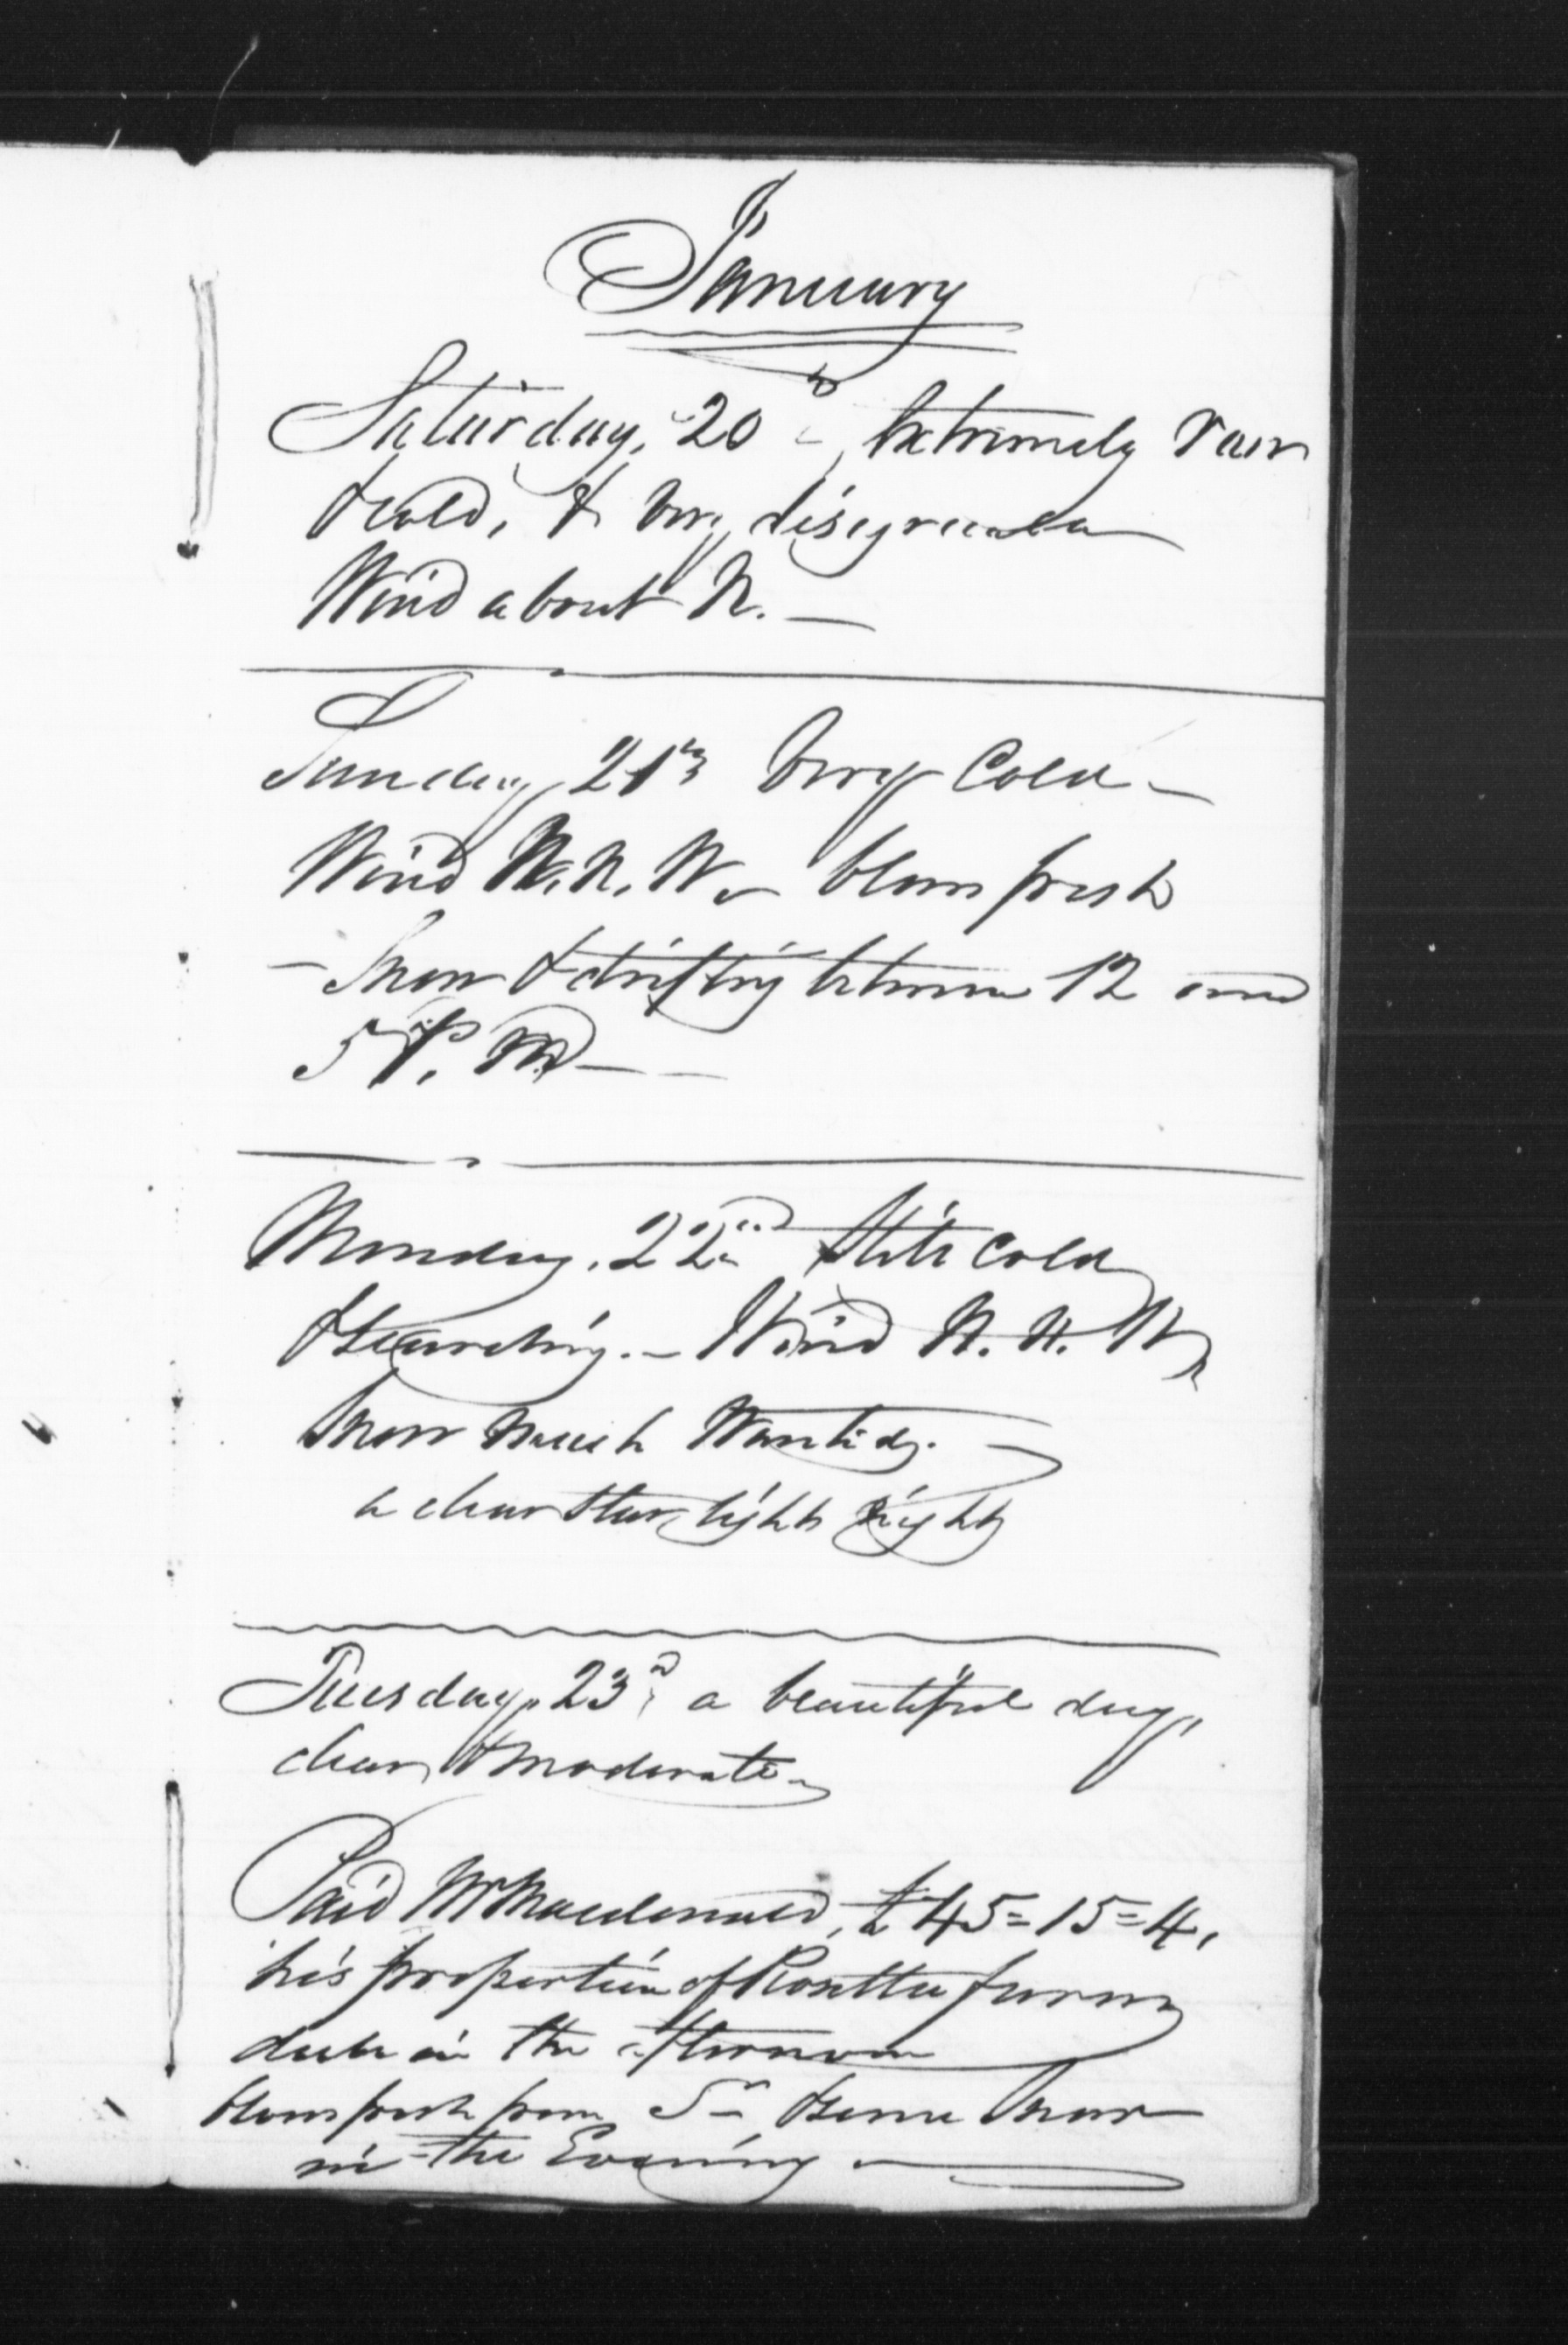 January
Saturday, 20th Extremely raw
& cold, & very disagreeable
Wind about N. —
Sunday, 21st Very Cold —
Wind N. N. W. blows fresh
— Snow & drifting between 12 and
5 P. M — —
Monday, 22nd Still cold
& searching. — Wind N. N. W
Snow much Wanted.
a clear star light night
Tuesday, 23d a beautiful day,
clear & moderate
Paid Mr Macdonald, £45=15=4,
his proportion of Rosetta farm
in the afternoon
blows fresh from S— & some snow
in the Evening —